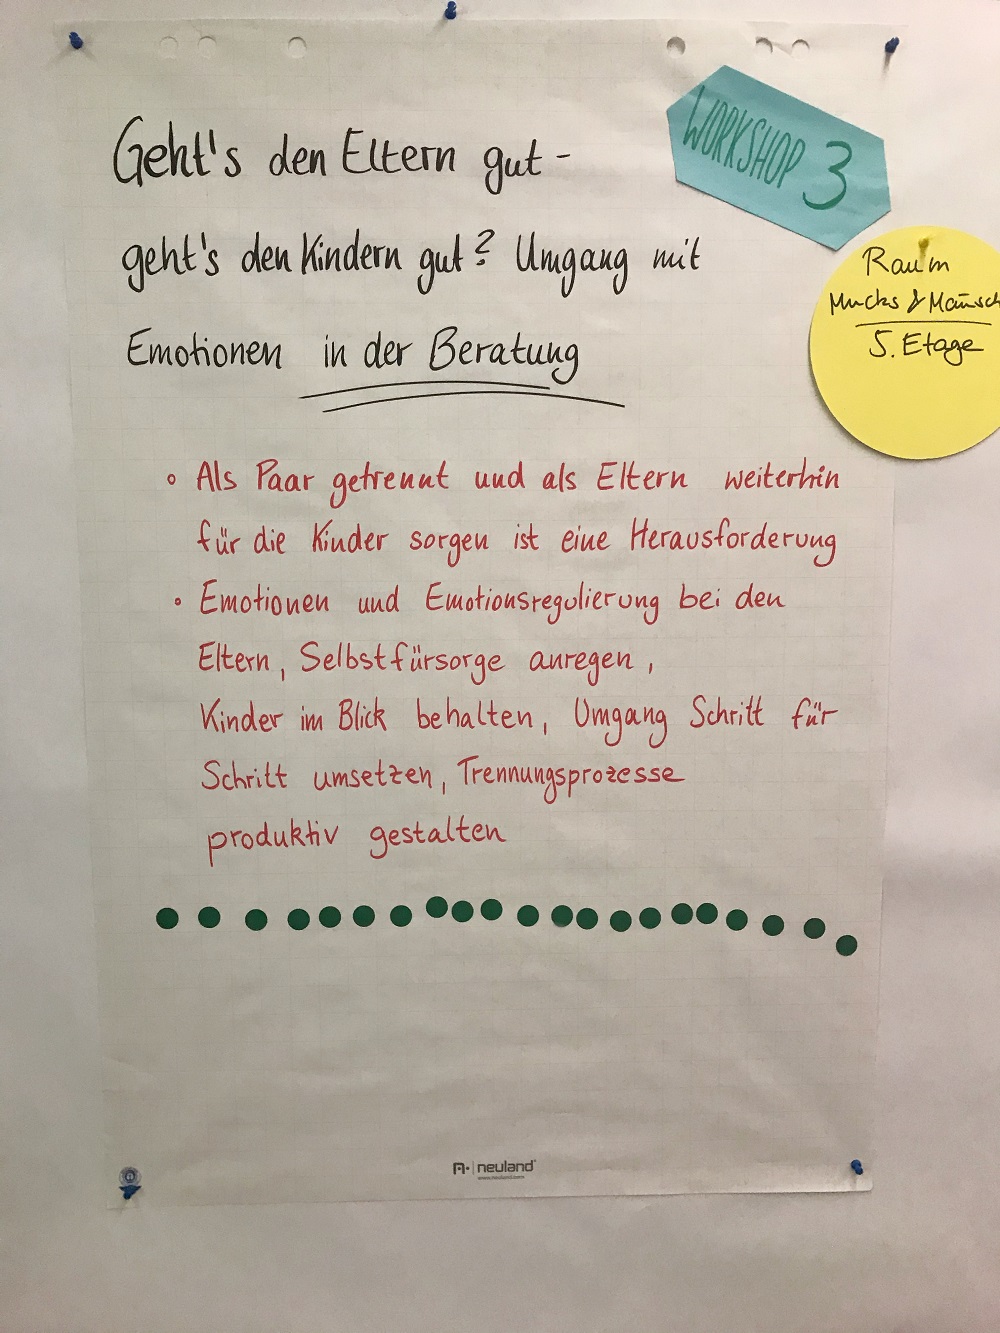 WORKSHOP 3
Geht's den Eltern gut -
geht's den Kindern gut? Umgang mit
Emotionen in der Beratung
Raum
Mucks & Mäusch
5. Etage
• Als Paar getrennt und als Eltern weiterhin
für die Kinder sorgen ist eine Herausforderung
• Emotionen und Emotionsregulierung bei den
Eltern, Selbstfürsorge anregen,
Kinder im Blick behalten, Umgang Schritt für
Schritt umsetzen, Trennungsprozesse
produktiv gestalten
neuland
www.neuland.com